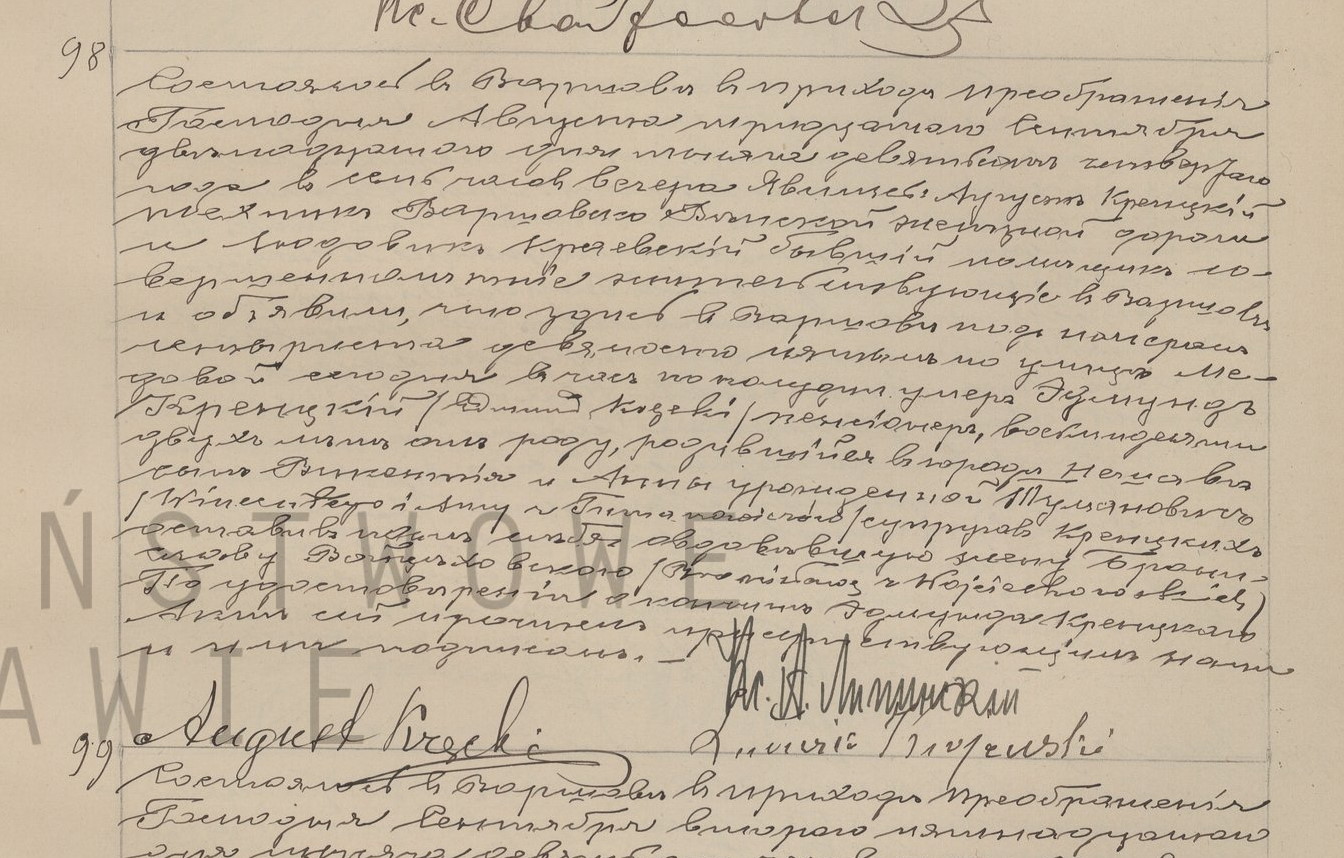 98
Состоялось въ Варшавѣ въ приходѣ Преображенія
Господня Августа тридцатаго Сентября
двѣнадцатаго дня тысяча девятьсотъ четвертаго
года въ семь часовъ вечера. Явились: Августъ Кренцкій
техникъ Варшавско Вѣнской желѣзной дороги
и Людовикъ Краевскій бывшій помѣщикъ со-
вершеннолѣтніе жительствующіе въ Варшавѣ
и объявили, что здѣсь въ Варшавѣ подъ номеромъ
четыреста девяносто пятымъ по улицѣ Ме-
довой сегодня въ часъ пополудни умеръ Эдмундъ
Кренцкій /Edmund Krzęcki/ пенсіонеръ, восьмидесяти
двухъ лѣтъ отъ роду, родившійся въ городѣ
сынъ Викентія и Анны урожденной Тумановичъ
/Wincentego i Anny z Tumanowiczów/ супруговъ Кренцкихъ
оставивъ послѣ себя овдовѣвшую жену Брони-
славу Войцѣховскую /Bronisławę z Wojciechowskich/
По удостовѣреніи о кончинѣ Эдмунда Кренцкаго
Актъ сей прочитанъ присутствующимъ нами
и ими подписанъ. —
Кс. А.
August Krzęcki
Ludwik Krajewski
99
Состоялось въ Варшавѣ въ приходѣ Преображенія
Господня Сентября втораго пятнадцатаго
дня тысяча